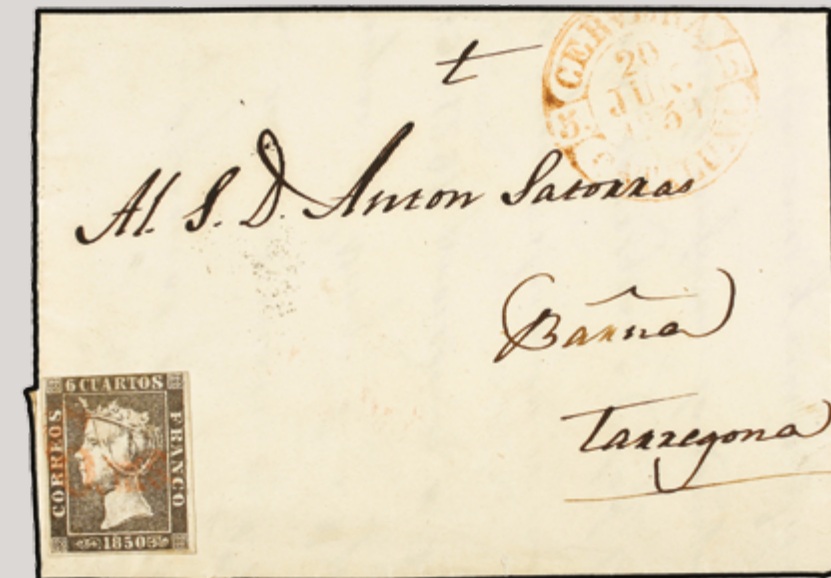 t
CERVERA
20
JUN.
CATALUÑA
Al. S. D. Anton Satorras
(Barna)
Tarregona
6 CUARTOS
CORREOS
FRANCO
1850